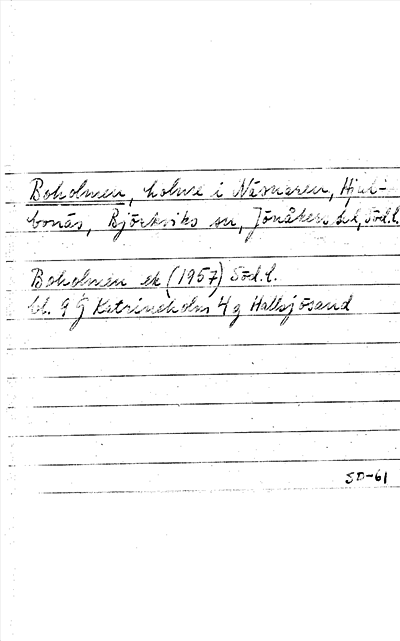 Boholmen, holme i Näsnaren, Hjul-
bonäs, Björkviks sn, Jönåkers hd, Söd.l.
Boholmen ek (1957) Söd.l.
bl. 9 G Katrineholm 4 g Hallsjösand
SD-61